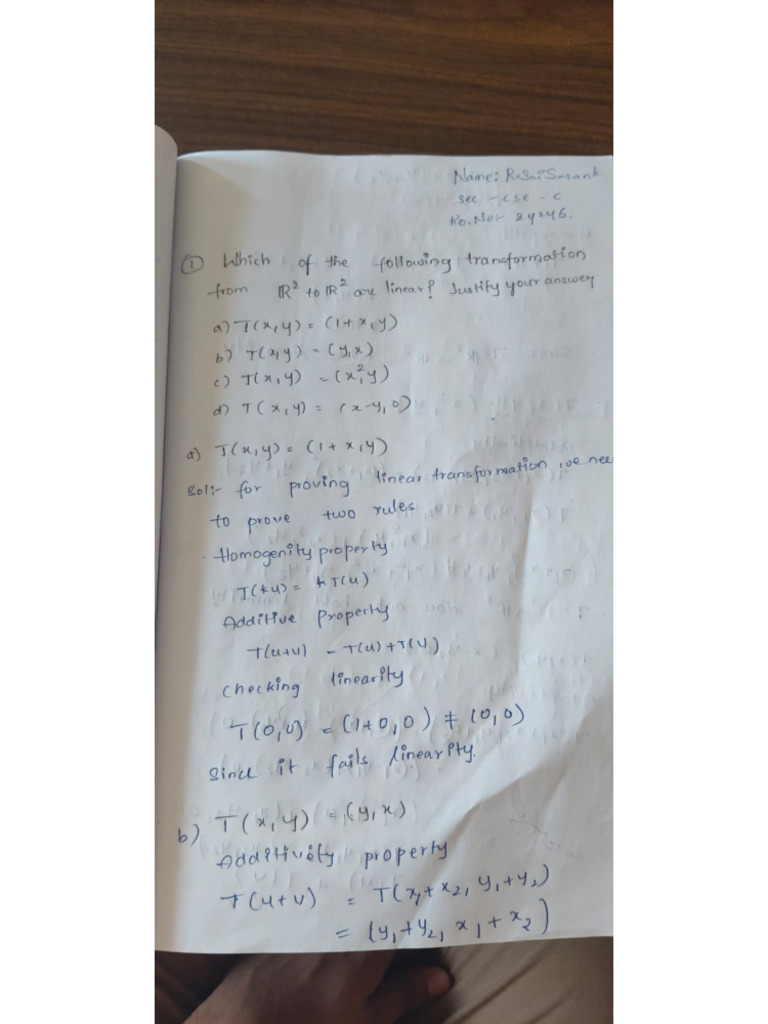 Name: R.Sai Sasank
Sec :- CSE - C
Ro.No:- 24246.
① Which of the following transformation
from ℝ² to ℝ² are linear? Justify your answer
a) T(x,y) = (1+x,y)
b) T(x,y) = (y,x)
c) T(x,y) = (x²,y)
d) T(x,y) = (x-y,0)
a) T(x,y) = (1+x,y)
Sol:- for proving linear transformation we nee
to prove two rules
Homogenity property
T(ku) = kT(u)
Additive Property
T(u+v) = T(u)+T(v)
Checking linearity
T(0,0) = (1+0,0) ≠ (0,0)
Since it fails linearity.
b) T(x,y) = (y,x)
Additivity property
T(u+v) = T(x₁+x₂, y₁+y₂)
= (y₁+y₂, x₁+x₂)